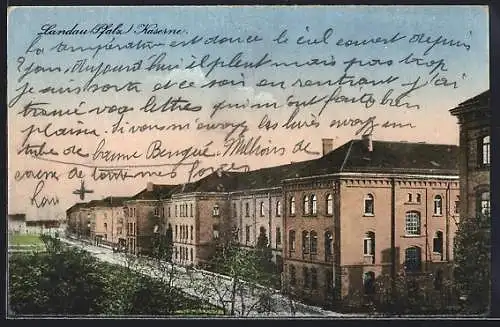 Landau (Pfalz) Kaserne.
la température est douce le ciel couvert depuis
5 jours, aujourd'hui il pleut mais pas trop
je suis sorti et ce soir en rentrant j'ai
trouvé vos lettres qui m'ont fait bien
plaisir. Si vous m'envoyez les livres envoyez un
tube de baume Bengué. Millions de